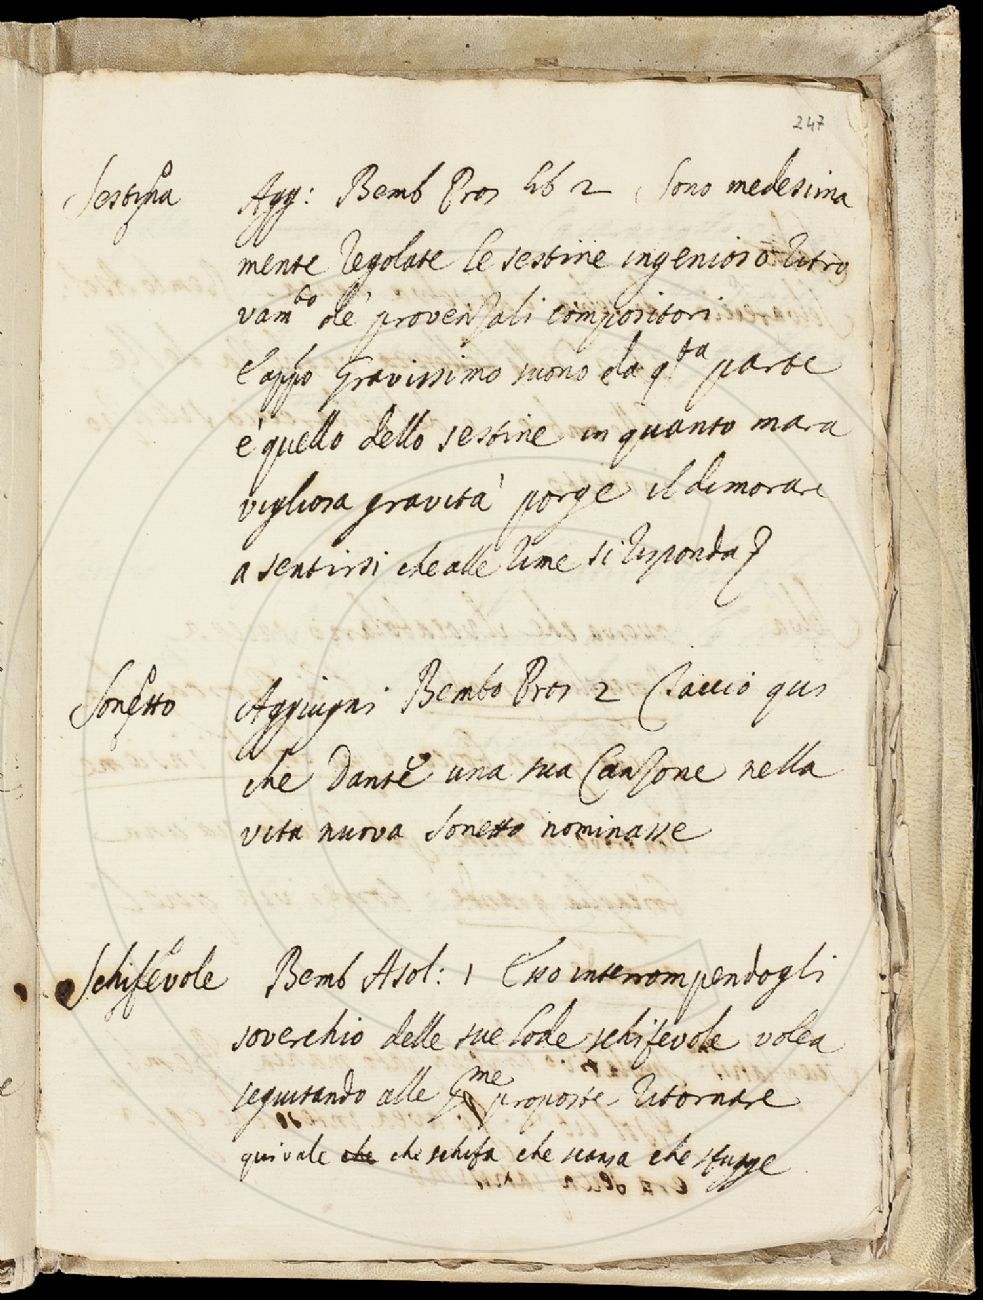 247
Sestina Agg: Bemb Pros lib 2 Sono medesima
mente regolate le sestine ingenioso ritro
vam.to de provenzali compositori
E app.o Gravissimo suono da q.ta parte
è quello dello sestine in quanto mara
vigliosa gravità porge il dimorare
a sentirsi che alle rime si risponda
Sonetto Aggiugni Bembo Pros 2 Taccio qui
che Dante una sua Canzone nella
vita nuova Sonetto nominasse
Schifevole Bemb Asol: 1 Esso interrompendogli
soverchio delle sue lode schifevole volea
seguitando alle p.me proposte ritornare
qui vale che che schifa che scansa che sfugge